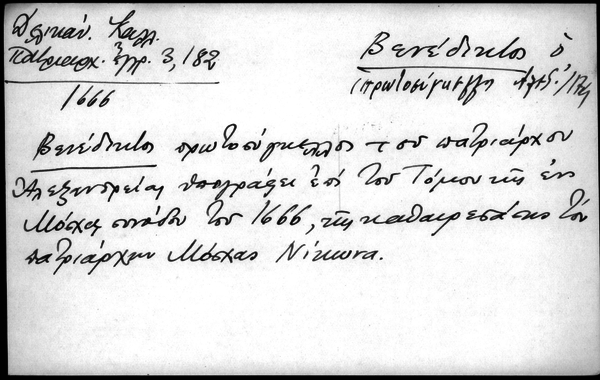 Δελικάν. Καλλ.
Πατριαρχ. Ἔγγρ. 3, 182
1666
Βενέδικτος ὁ
(πρωτοσύγκελλος Ἀλεξ.)
Βενέδικτος πρωτοσύγκελλος τοῦ πατριάρχου
Ἀλεξανδρείας ὑπογράφει ἐπὶ τοῦ Τόμου τῆς ἐν
Μόσχᾳ συνόδου τοῦ 1666, τῆς καθαιρεσάσης τὸν
πατριάρχην Μόσχας Νίκωνα.